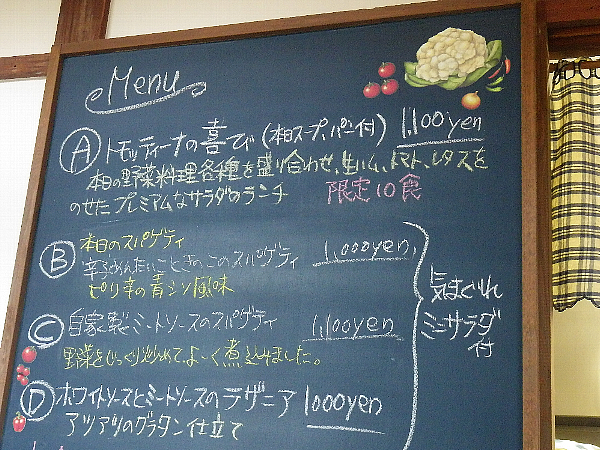 Menu
A トモッティーナの喜び(本日スープ、パン付) 1,100yen
本日の野菜料理各種を盛り合わせ、生ハム、トマト、レタスを
のせたプレミアムなサラダのランチ 限定10食
B 本日のスパゲティ
辛子めんたいこときのこのスパゲティ 1,000yen
ピリ辛の青ジソ風味
C 自家製ミートソースのスパゲティ 1,100yen
野菜をじっくり炒めてよ〜く煮込みました。
D ホワイトソースとミートソースのラザニア 1000yen
アツアツのグラタン仕立て
気まぐれ
ミニサラダ
付